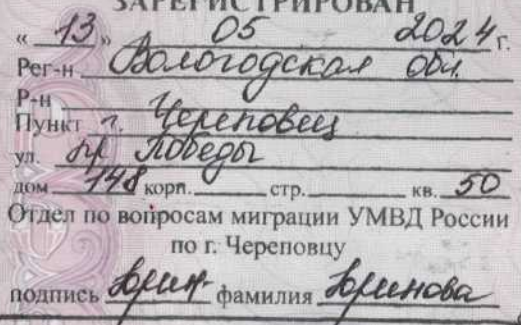 ЗАРЕГИСТРИРОВАН
« 13 » 05 2024 г.
Рег-н Вологодская обл.
Р-н
Пункт г. Череповец
ул. пр Победы
дом 148 корп. стр. кв. 50
Отдел по вопросам миграции УМВД России
по г. Череповцу
подпись фамилия Юринова